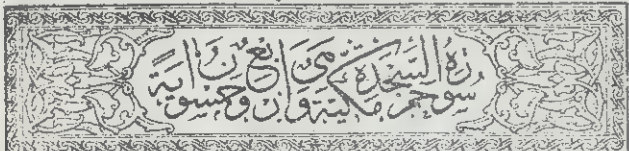 سورة حم السجدة مكية وهي اربع وخمسون اية